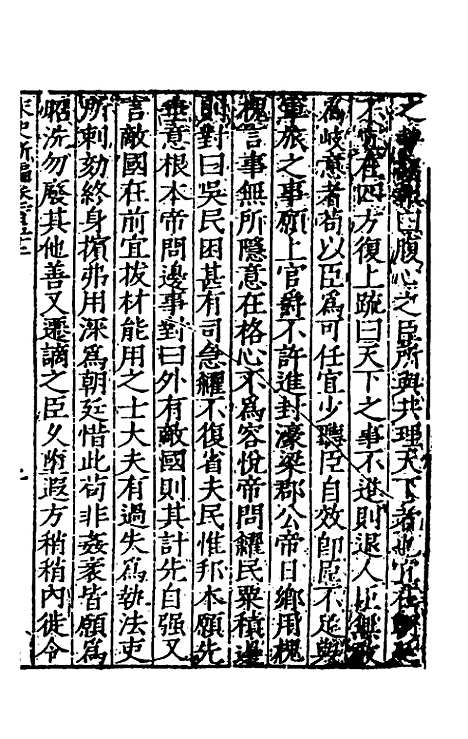 之□□報曰腹心之臣所與共理天下者也宜在朝廷
不宜在四方復上疏曰天下之事不進則退人臣無敢
為岐意者苟以臣為可任宜少聽臣自效即臣不足與
軍旅之事願上官爵不許進封濠梁郡公帝日鄉用槐
槐言事無所隱意在格心不為容悅帝問糴民粟積邊
則對曰吳民困甚有司急糴不復省夫民惟邦本願先
垂意根本帝問邊事對曰外有敵國則其計先自强又
言敵國在前宜拔材能用之士大夫有過失為執法吏
所刺劾終身擯弗用深為朝廷惜此苟非姦衺皆願為
昭洗勿廢其他善又遷謫之臣久墮遐方稍稍內徙令
宋史新編卷一百五十二
九